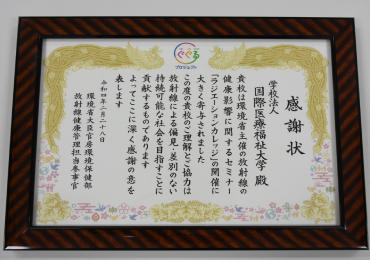 ぐぐる
プロジェクト
感謝状
学校法人
国際医療福祉大学 殿
貴校は環境省主催の放射線の
健康影響に関するセミナー
「ラジエーションカレッジ」の開催に
大きく寄与されました
この度の貴校のご理解とご協力は
放射線による偏見・差別のない
持続可能な社会を目指すことに
貢献するものであります
よってここに深く感謝の意を
表します
令和四年二月二十八日
環境省大臣官房環境保健部
放射線健康管理担当参事官